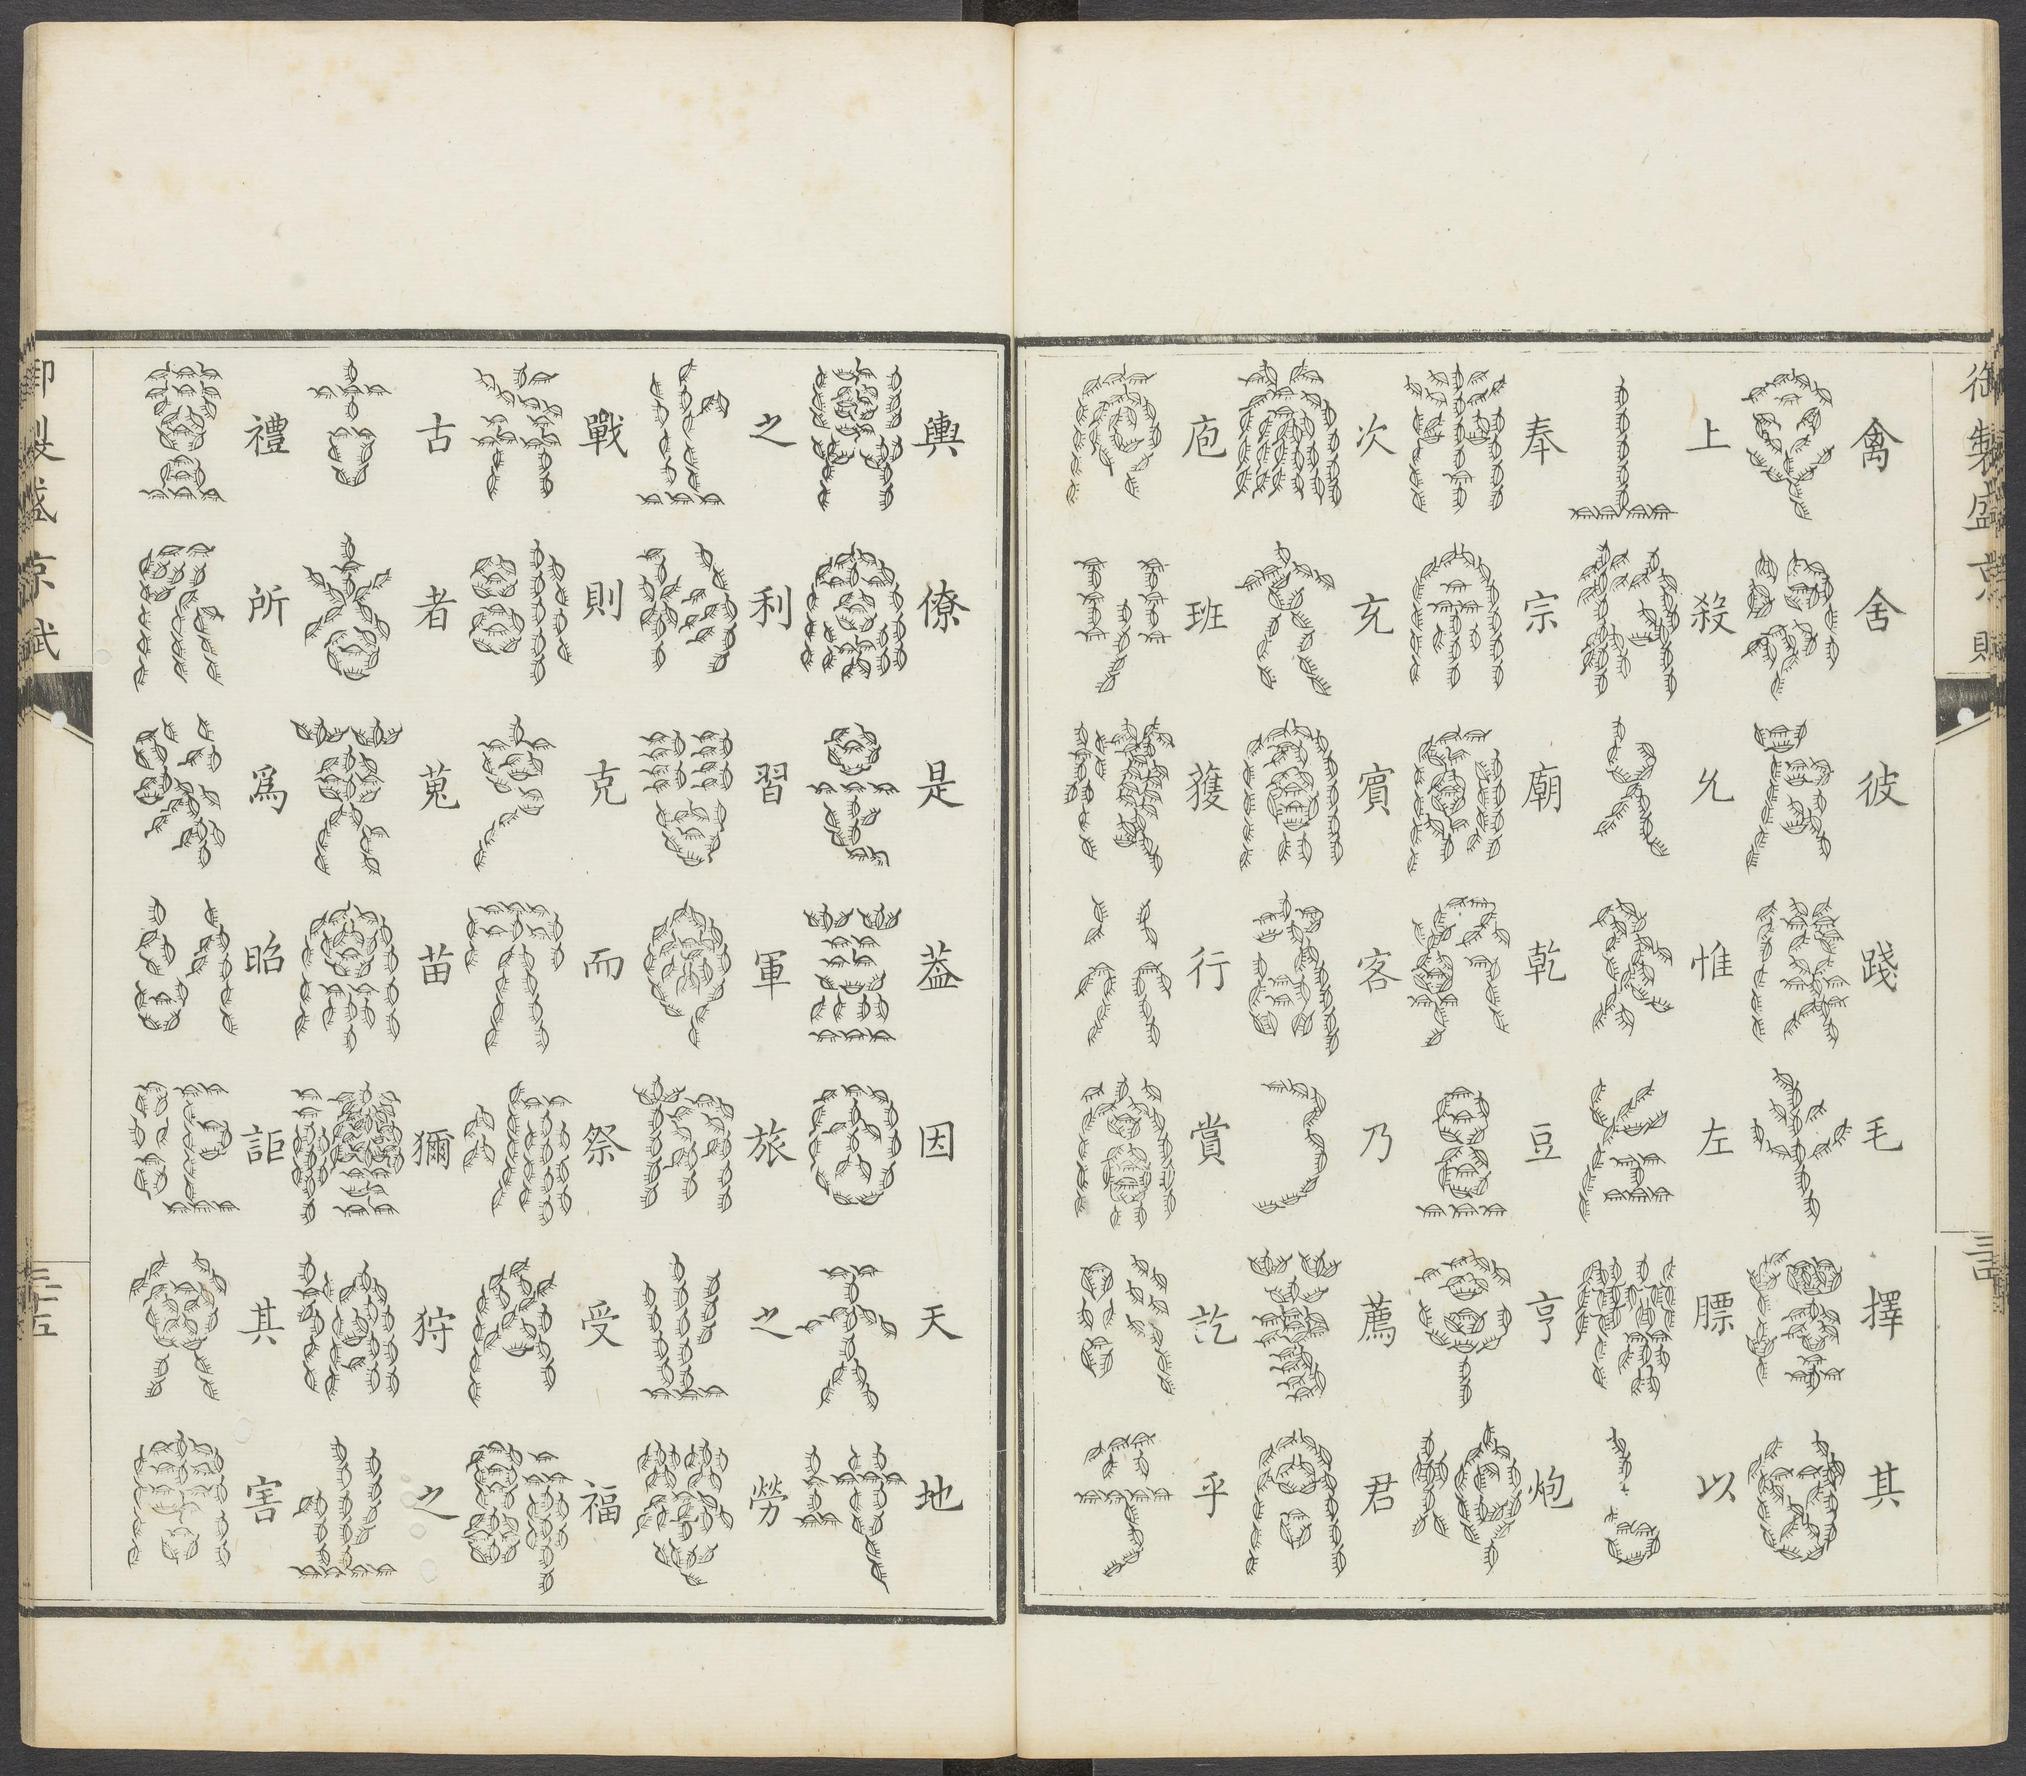 御製盛京賦
三十四
禽舍彼踐毛擇其
上殺允惟左膘以
奉宗廟乾豆亨炮
次充賓客乃薦君
庖班獲行賞訖乎
輿僚是葢因天地
之利習軍旅之勞
戰則克而祭受福
古者蒐苗獮狩之
禮所爲昭詎其害
御製盛京賦
三十五